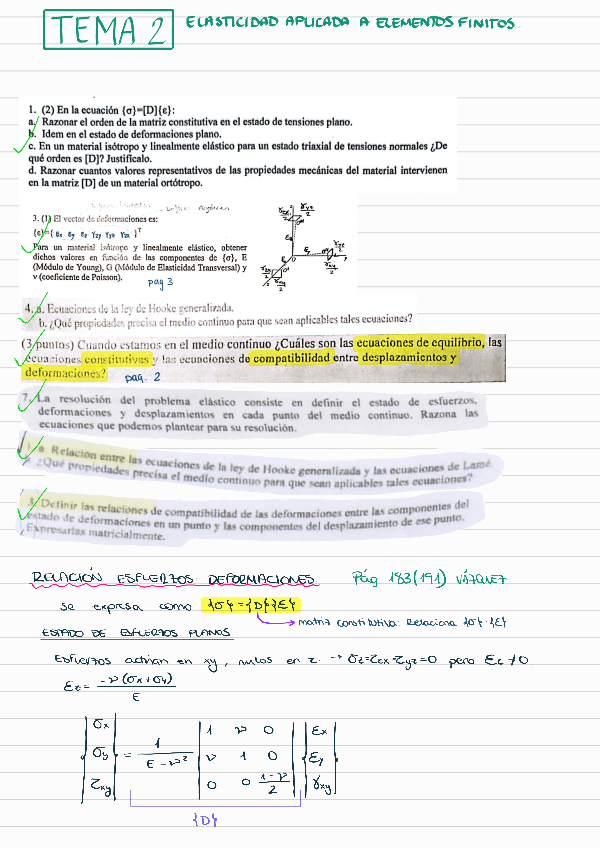 TEMA 2 ELASTICIDAD APLICADA A ELEMENTOS FINITOS.
1. (2) En la ecuación {σ}=[D]{ε}:
a. Razonar el orden de la matriz constitutiva en el estado de tensiones plano.
b. Idem en el estado de deformaciones plano.
c. En un material isótropo y linealmente elástico para un estado triaxial de tensiones normales ¿De
qué orden es [D]? Justifícalo.
d. Razonar cuantos valores representativos de las propiedades mecánicas del material intervienen
en la matriz [D] de un material ortótropo.
3. (1) El vector de deformaciones es:
{ε}={ εx εy εz γxy γyz γzx }T
Para un material isótropo y linealmente elástico, obtener
dichos valores en función de las componentes de {σ}, E
(Módulo de Young), G (Módulo de Elasticidad Transversal) y
ν (coeficiente de Poisson).
pag 3
4. a. Ecuaciones de la ley de Hooke generalizada.
b. ¿Qué propiedades precisa el medio continuo para que sean aplicables tales ecuaciones?
(3 puntos) Cuando estamos en el medio continuo ¿Cuáles son las ecuaciones de equilibrio, las
ecuaciones constitutivas y las ecuaciones de compatibilidad entre desplazamientos y
deformaciones? pag. 2
7. La resolución del problema elástico consiste en definir el estado de esfuerzos,
deformaciones y desplazamientos en cada punto del medio continuo. Razona las
ecuaciones que podemos plantear para su resolución.
a. Relación entre las ecuaciones de la ley de Hooke generalizada y las ecuaciones de Lamé.
¿Qué propiedades precisa el medio continuo para que sean aplicables tales ecuaciones?
3. Definir las relaciones de compatibilidad de las deformaciones entre las componentes del
estado de deformaciones en un punto y las componentes del desplazamiento de ese punto.
¿Expresarlas matricialmente.
RELACIÓN ESFUERZOS DEFORMACIONES Pág 183(191) VÁZQUEZ
se expresa como {σ}={D}{ε}
matriz constitutiva. Relaciona {σ}·{ε}
ESTADO DE ESFUERZOS PLANOS
Esfuerzos actúan en xy, nulos en z. → σz=τzx=τyz=0 pero εz≠0
εz = -ν(σx+σy) / E
{σx σy τxy} = 1 / E-ν² | 1 ν 0 | {εx εy γxy}
ν 1 0
0 0 1-ν / 2
{D}